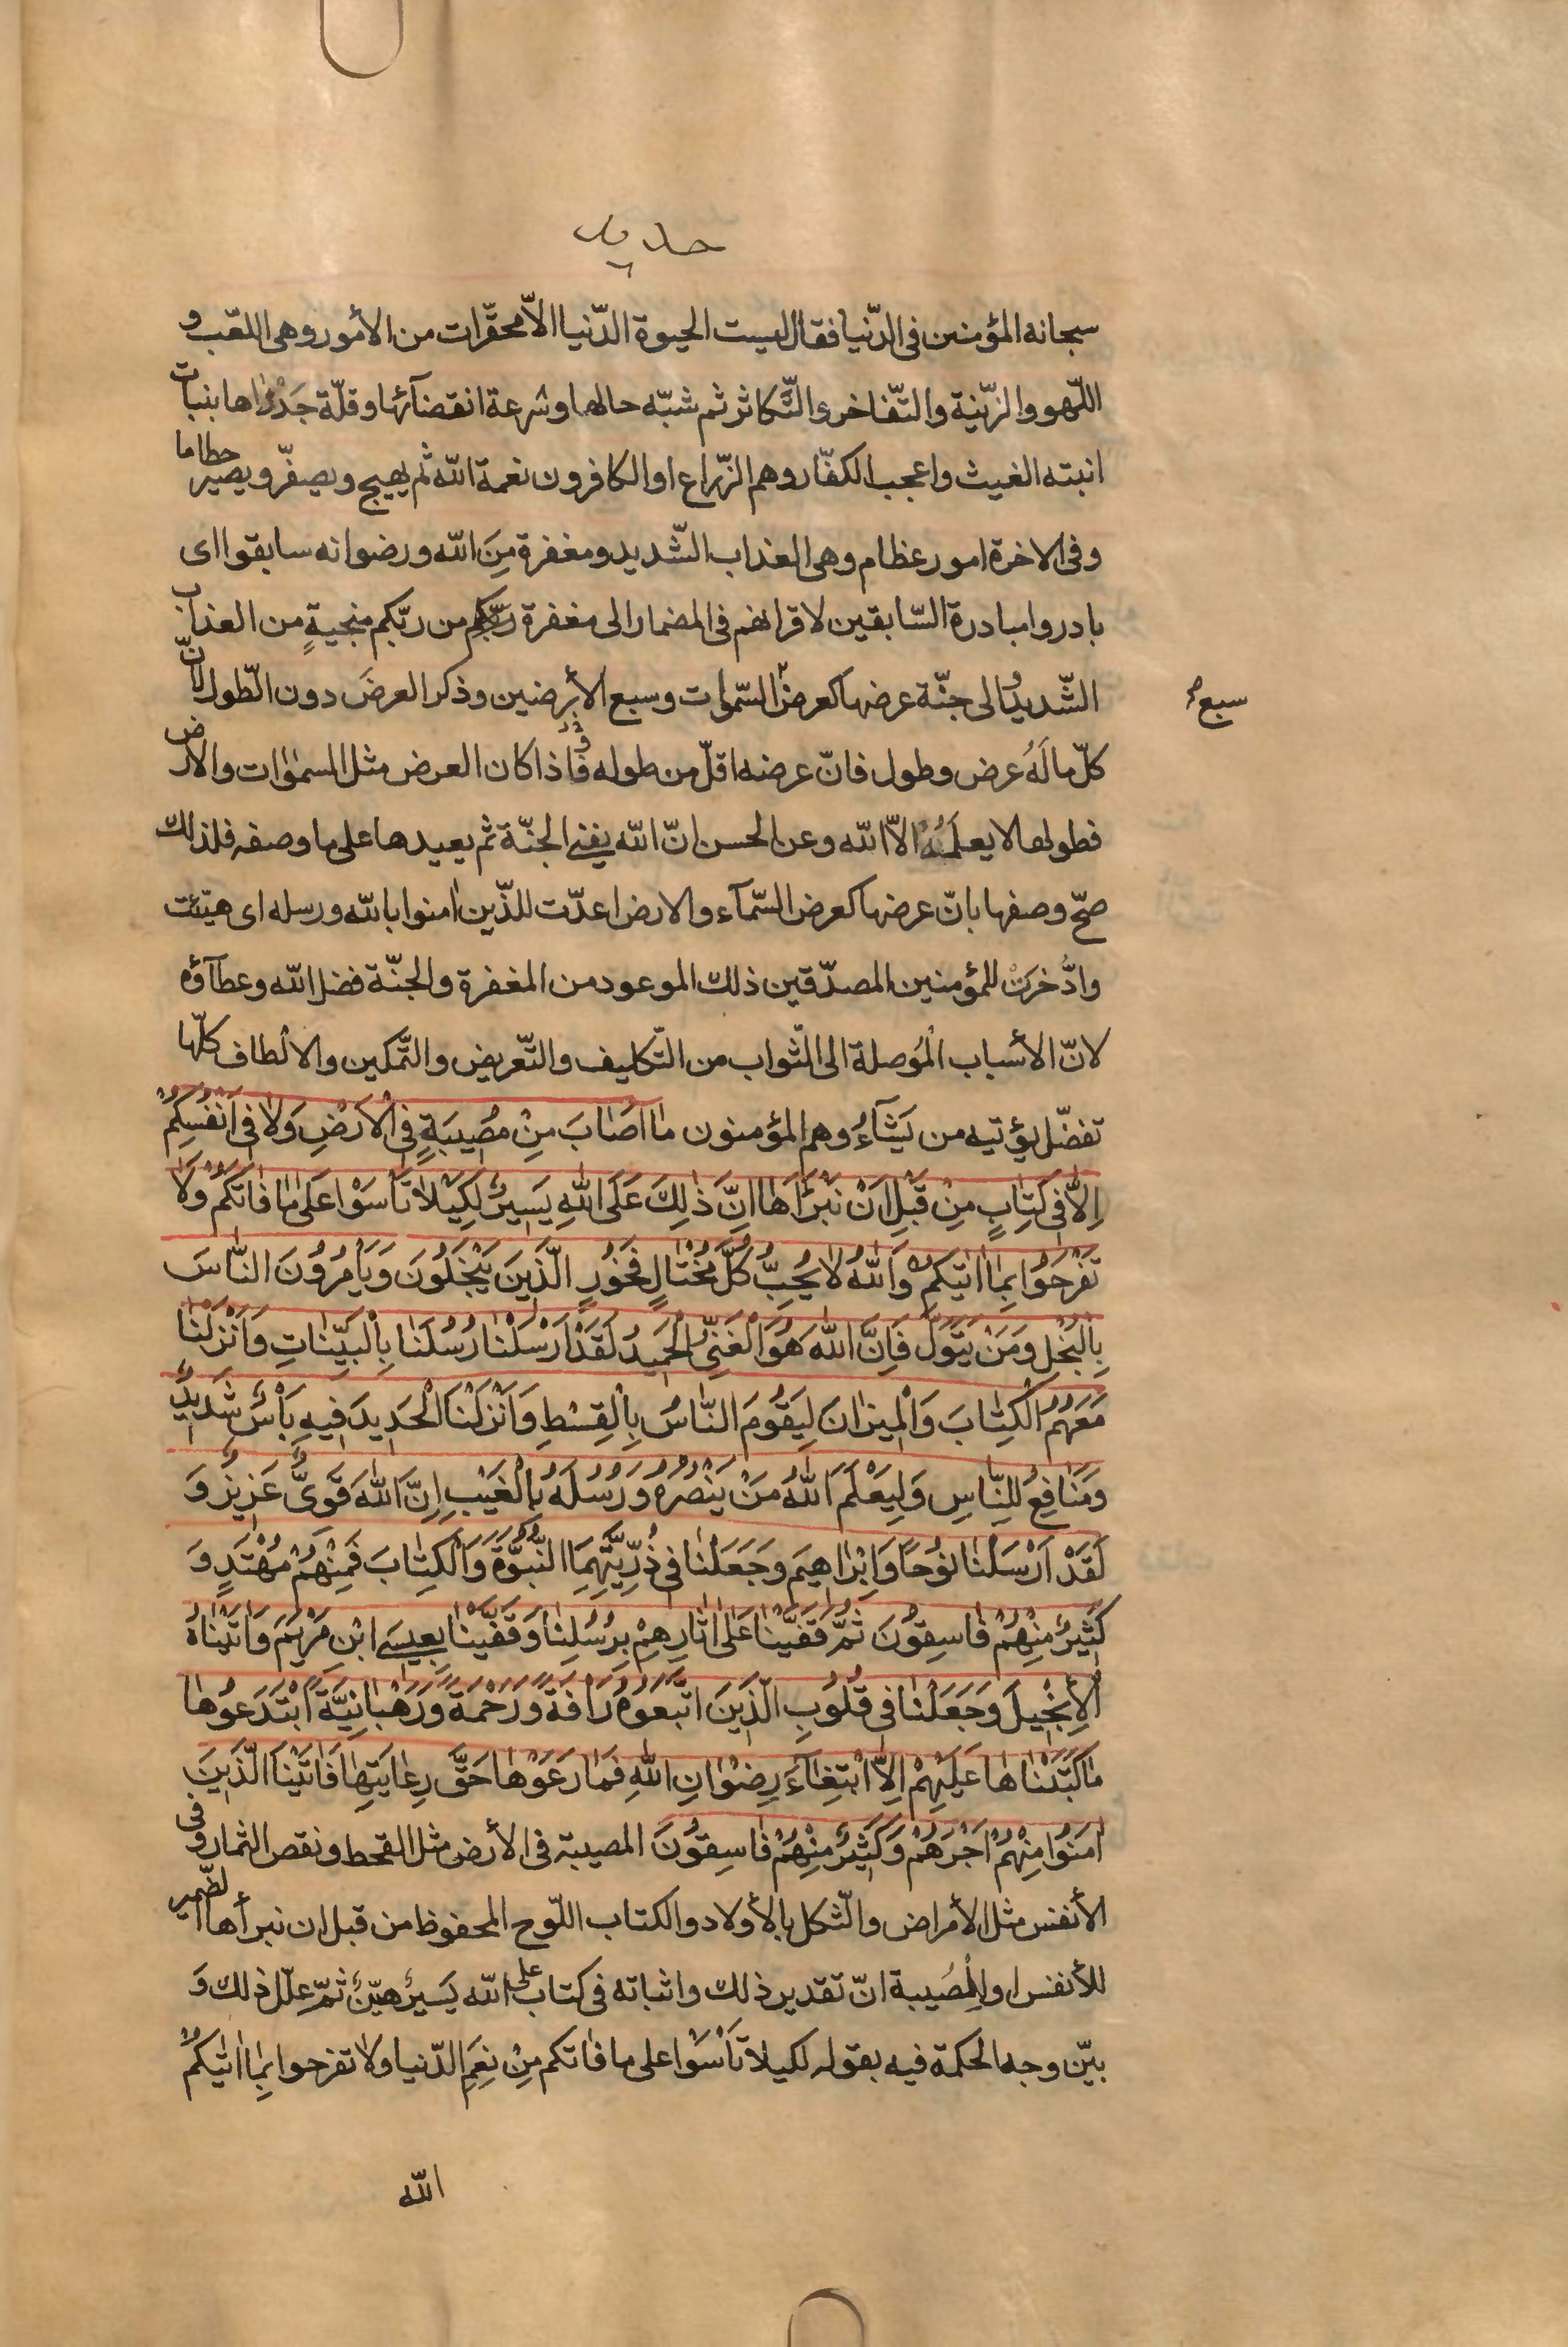 حديد
سبحانه المؤمنين فى الدّنيا فقال ليست الحيوة الدّنيا الاّ محقّرات من الأمور وهى اللعّب و
اللّهو والزّينة والتّفاخر والتّكاثر ثم شبّه حالها وسُرعة انقضآئها وقلّة جَدْواها بنبات
انبته الغيث واعجب الكفّار وهم الزّراع او الكافرون نعمة الله ثم يهيج ويصفرّ ويصير حطاما
وفى الاخرة امور عظام وهى العذاب الشّديد ومغفرة مِنَ الله ورضوانه سابقوا اى
بادروا مبادرة السّابقين لاقرانهم فى المضمار الى مغفرة ربّكم من ربّكم منجيةٍ من العذاب
الشّديد والى جنّة عرضها كعرض السّموات وسبع الأرضين وذكر العرضَ دون الطّول لانّ
سبع صح
كلّ ما لَهُ عرض وطول فانّ عرضه اقلّ من طوله فاذا كان العرض مثل السمٰوٰات والارض
فطولها لا يعلَمُهُ الاّ الله وعن الحسن انّ الله يفنى الجنّة ثم يعيدها على ما وصفه فلذلك
صحّ وصفها بانّ عرضها كعرض السّمآء والارض اعدّت للذّين اٰمنوا بالله ورسله اى هيّئت
وادُّخرَتْ للمؤمنين المصدّقين ذلك الموعود من المغفرة والجنّة فضل الله وعطآؤه
لانّ الأسباب الْمُوصلة الى الثّواب من التّكليف والتّعريض والتّمكين والالْطاف كلّها
تفضّل يؤتيه من يَشَآءُ وهم المؤمنون مٰا اَصٰابَ مِنْ مُصٖيبَةٍ فِى الْاَرْضِ وَلاٰ فٖى اَنْفُسِكُمْ
اِلاّٰ فٖى كِتٰابٍ مِنْ قَبْلِ اَنْ نَبْرَاَهٰا اِنَّ ذٰلِكَ عَلَى اللهِ يَسٖيرٌ لِكَيْلاٰ تَاْسَوْا عَلىٰ مٰا فٰاتَكُمْ وَلاٰ
تَفْرَحُوا بِمٰا اٰتٰيكُمْ وَاللهُ لاٰ يُحِبُّ كُلَّ مُخْتٰالٍ فَخُورٍ الَّذٖينَ يَبْخَلُونَ وَيَاْمُرُونَ النّٰاسَ
بِالْبُخْلِ وَمَنْ يَتَوَلَّ فَاِنَّ اللهَ هُوَ الْغَنِىُّ الْحَمٖيدُ لَقَدْ اَرْسَلْنٰا رُسُلَنٰا بِالْبَيِّنٰاتِ وَاَنْزَلْنٰا
مَعَهُمُ الْكِتٰابَ وَالْمٖيزٰانَ لِيَقُومَ النّٰاسُ بِالْقِسْطِ وَاَنْزَلْنَا الْحَدٖيدَ فٖيهِ بَاْسٌ شَدٖيدٌ
وَمَنٰافِعُ لِلنّٰاسِ وَلِيَعْلَمَ اللهُ مَنْ يَنْصُرُهُ وَرُسُلَهُ بِالْغَيْبِ اِنَّ اللهَ قَوِىٌّ عَزٖيزٌ وَ
لَقَدْ اَرْسَلْنٰا نُوحاً وَاِبْرٰاهٖيمَ وَجَعَلْنٰا فٖى ذُرِّيَّتِهِمَا النُّبُوَّةَ وَالْكِتٰابَ فَمِنْهُمْ مُهْتَدٍ وَ
كَثٖيرٌ مِنْهُمْ فٰاسِقُونَ ثُمَّ قَفَّيْنٰا عَلىٰ اٰثٰارِهِمْ بِرُسُلِنٰا وَقَفَّيْنٰا بِعٖيسَى ابْنِ مَرْيَمَ وَاٰتَيْنٰاهُ
الْاِنْجٖيلَ وَجَعَلْنٰا فٖى قُلُوبِ الَّذٖينَ اتَّبَعُوهُ رَاْفَةً وَرَحْمَةً وَرَهْبٰانِيَّةً ابْتَدَعُوهٰا
مٰا كَتَبْنٰاهٰا عَلَيْهِمْ اِلاَّ ابْتِغٰآءَ رِضْوٰانِ اللهِ فَمٰا رَعَوْهٰا حَقَّ رِعٰايَتِهٰا فَاٰتَيْنَا الَّذٖينَ
اٰمَنُوا مِنْهُمْ اَجْرَهُمْ وَكَثٖيرٌ مِنْهُمْ فٰاسِقُونَ المصيبة فى الأرض مثل القحط ونقص الثمار وفى
الأنفس مثل الأمراض والثّكل بالأولاد والكتاب اللّوح المحفوظ من قبل ان نبرأها الضّمير
للأنفس او المُصيبة انّ تقدير ذلك واثباته فى كتاب على الله يَسيرٌ هيّنٌ ثمّ علّل ذلك وَ
بيّن وجه الحكمة فيه بقوله لكيلا تَأْسَوْا على ما فٰاتكم مِنْ نِعَمِ الدّنيا ولاٰ تفرحوا بِمٰا اٰتٰيكُمُ
الله